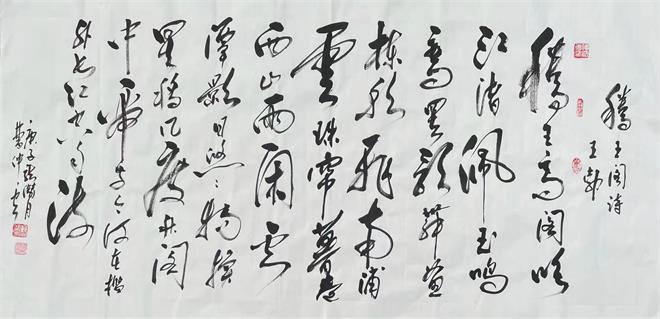 滕王阁诗
王勃
滕王高阁临
江渚佩玉鸣
鸾罢歌舞画
栋朝飞南浦
云珠帘暮卷
西山雨闲云
潭影日悠々物换
星移几度秋阁
中帝子今何在槛
外长江空自流
庚子月